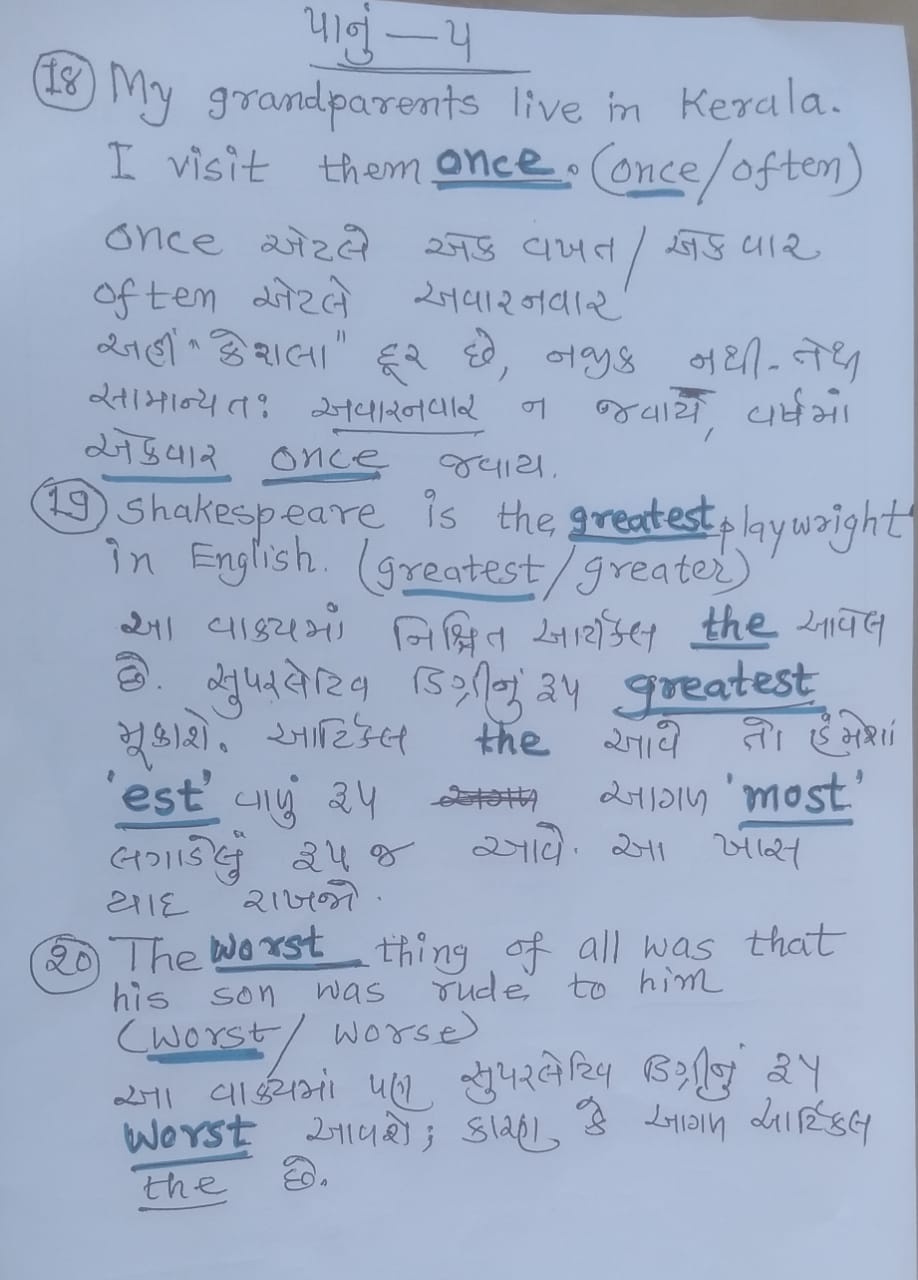 પાનું — ૫
(18) My grandparents live in Kerala.
I visit them once. (once/often)
once એટલે એક વખત / એક વાર
often એટલે અવારનવાર
અહીં "કેરાલા" દૂર છે, નજીક નથી- તેથી
સામાન્યતઃ અવારનવાર ન જવાય, વર્ષમાં
એકવાર once જવાય.
(19) Shakespeare is the greatest playwright
in English. (greatest/greater)
આ વાક્યમાં નિશ્ચિત આર્ટીકલ the આવેલ
છે. સુપરલેટિવ ડિગ્રીનું રૂપ greatest
મૂકાશે. આર્ટિકલ the આવે તો હંમેશાં
'est' વાળું રૂપ આગળ 'most'
લગાડેલું રૂપ જ આવે. આ ખાસ
યાદ રાખજો.
(20) The worst thing of all was that
his son was rude to him
(worst/ worse)
આ વાક્યમાં પણ સુપરલેટિવ ડિગ્રીનું રૂપ
worst આવશે; કારણ કે આગળ આર્ટિકલ
the છે.